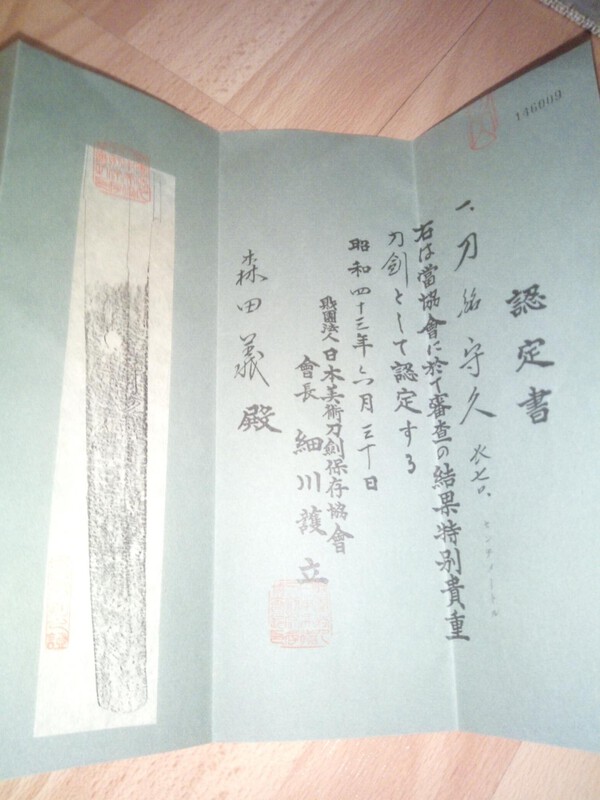 146009
認定書
一、刀 銘 守久 長七〇、
センチメートル
右は當協會に於て審査の結果特別貴重
刀劍として認定する
昭和四十三年六月三十日
財團法人日本美術刀劍保存協會
會長 細川護立
森田義殿